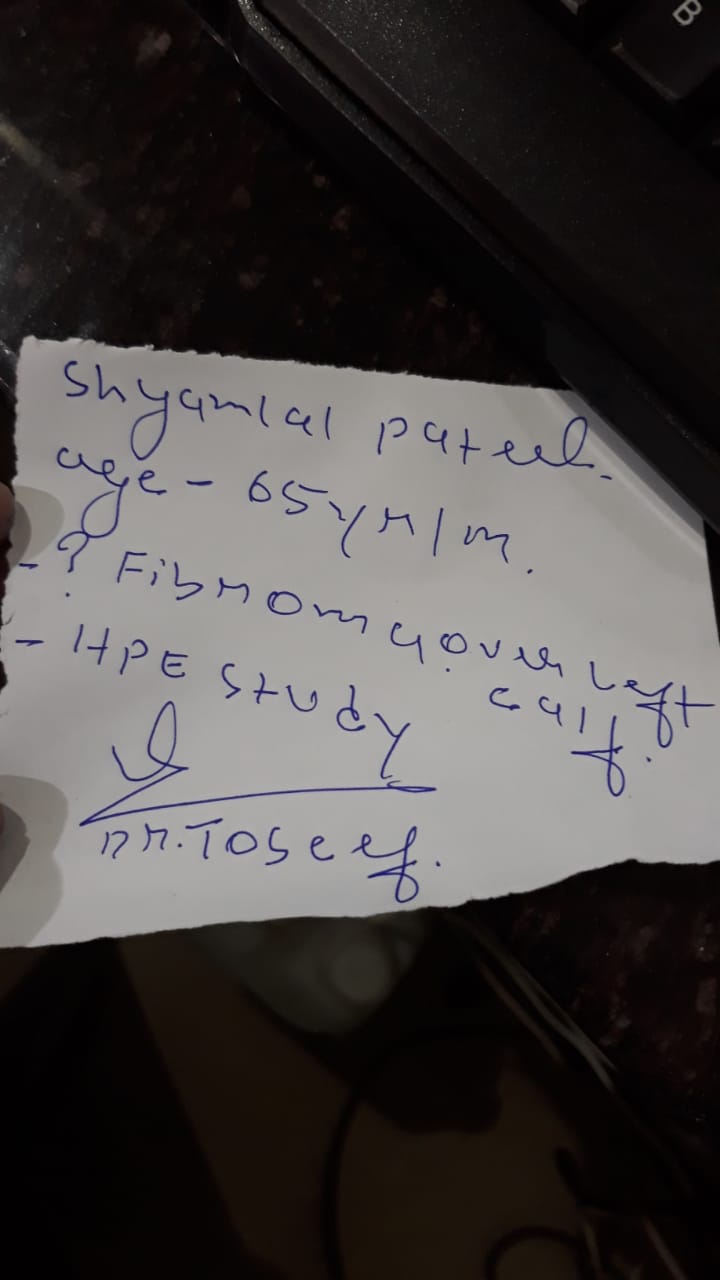 B
Shyamlal pateel.
age - 65yr/m.
- ? Fibroma over left
calf.
- HPE Study
Dr. Toseef.